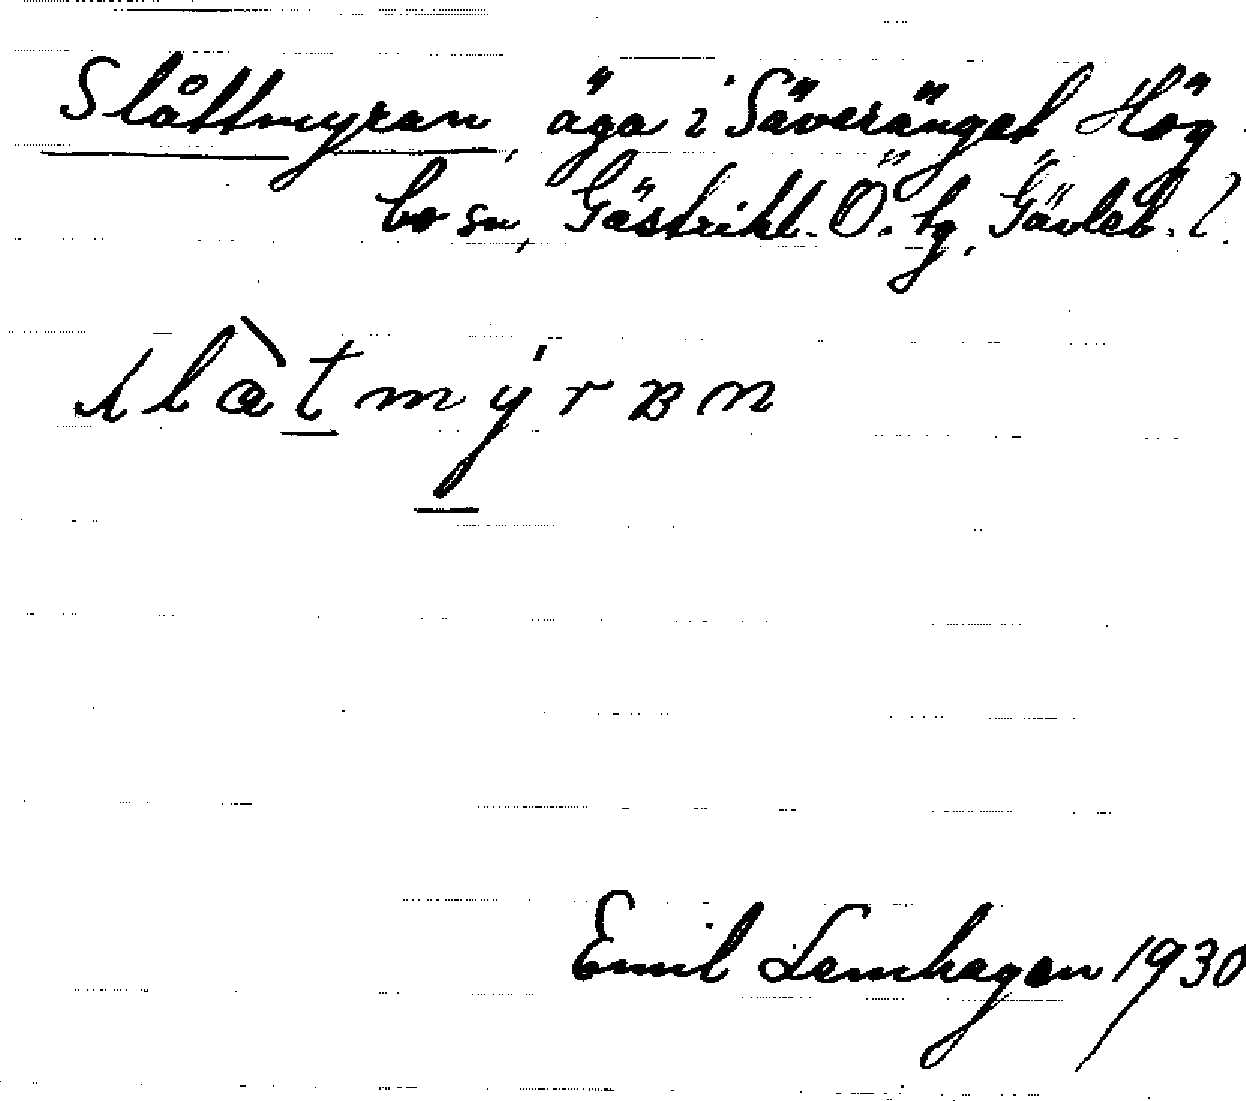 Slåttmyran, äga i Säveränget Hög
bo sn, Gästrikl. Ö. tg, Gävleb. l.
slàtmýrʙn
Emil Lemhagen 1930